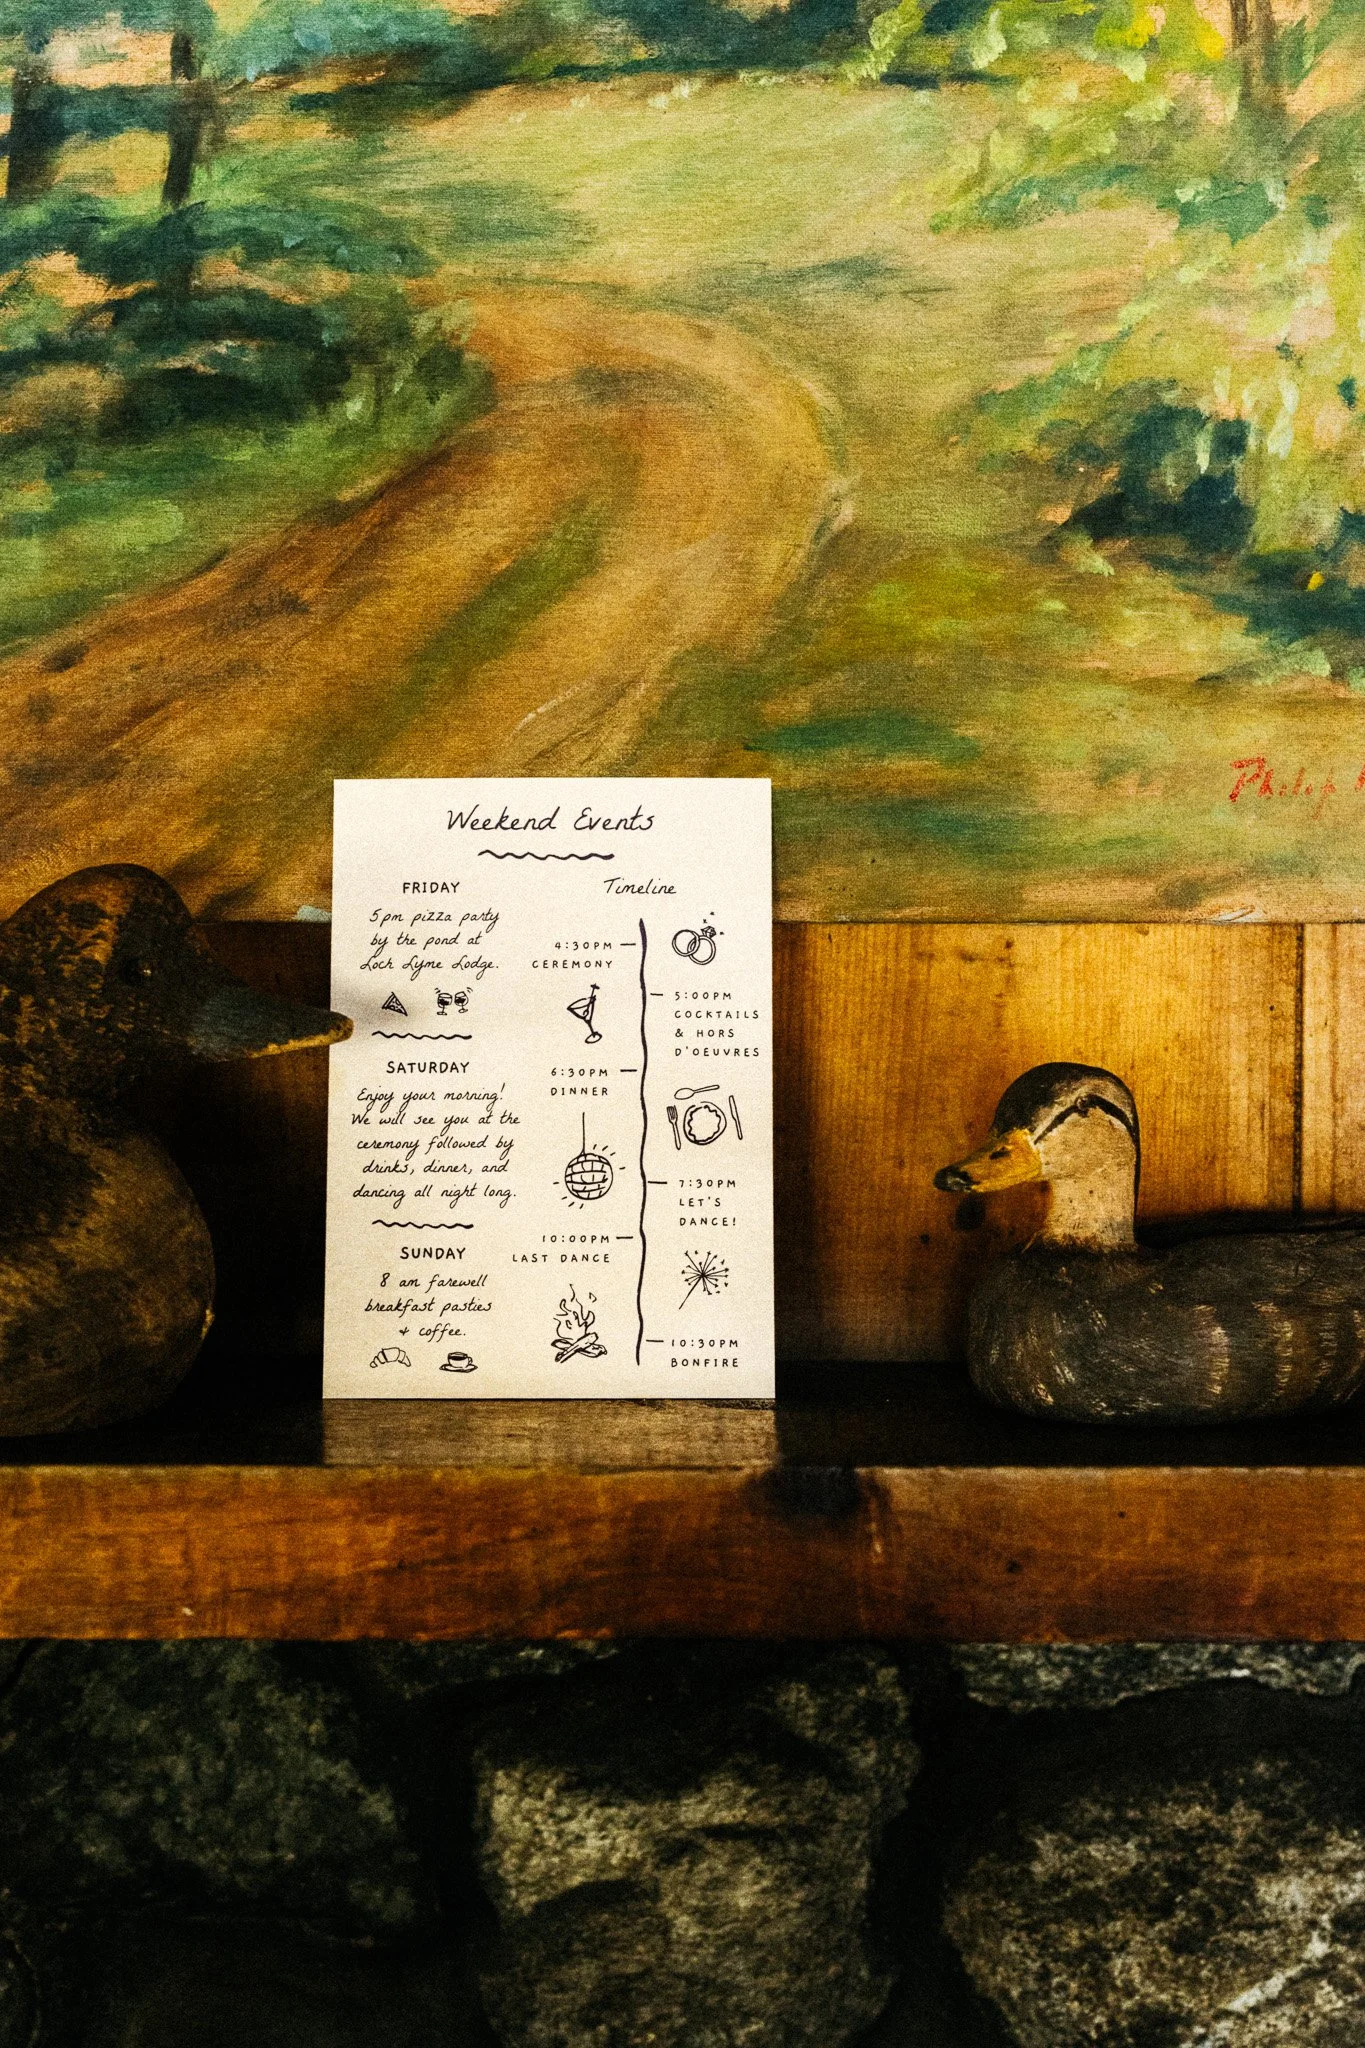 Philip
Weekend Events
FRIDAY
5pm pizza party
by the pond at
Loch Lyme Lodge.
SATURDAY
Enjoy your morning!
We will see you at the
ceremony followed by
drinks, dinner, and
dancing all night long.
SUNDAY
8 am farewell
breakfast pasties
+ coffee.
Timeline
4:30PM
CEREMONY
5:00PM
COCKTAILS
& HORS
D'OEUVRES
6:30PM
DINNER
7:30PM
LET'S
DANCE!
10:00PM
LAST DANCE
10:30PM
BONFIRE